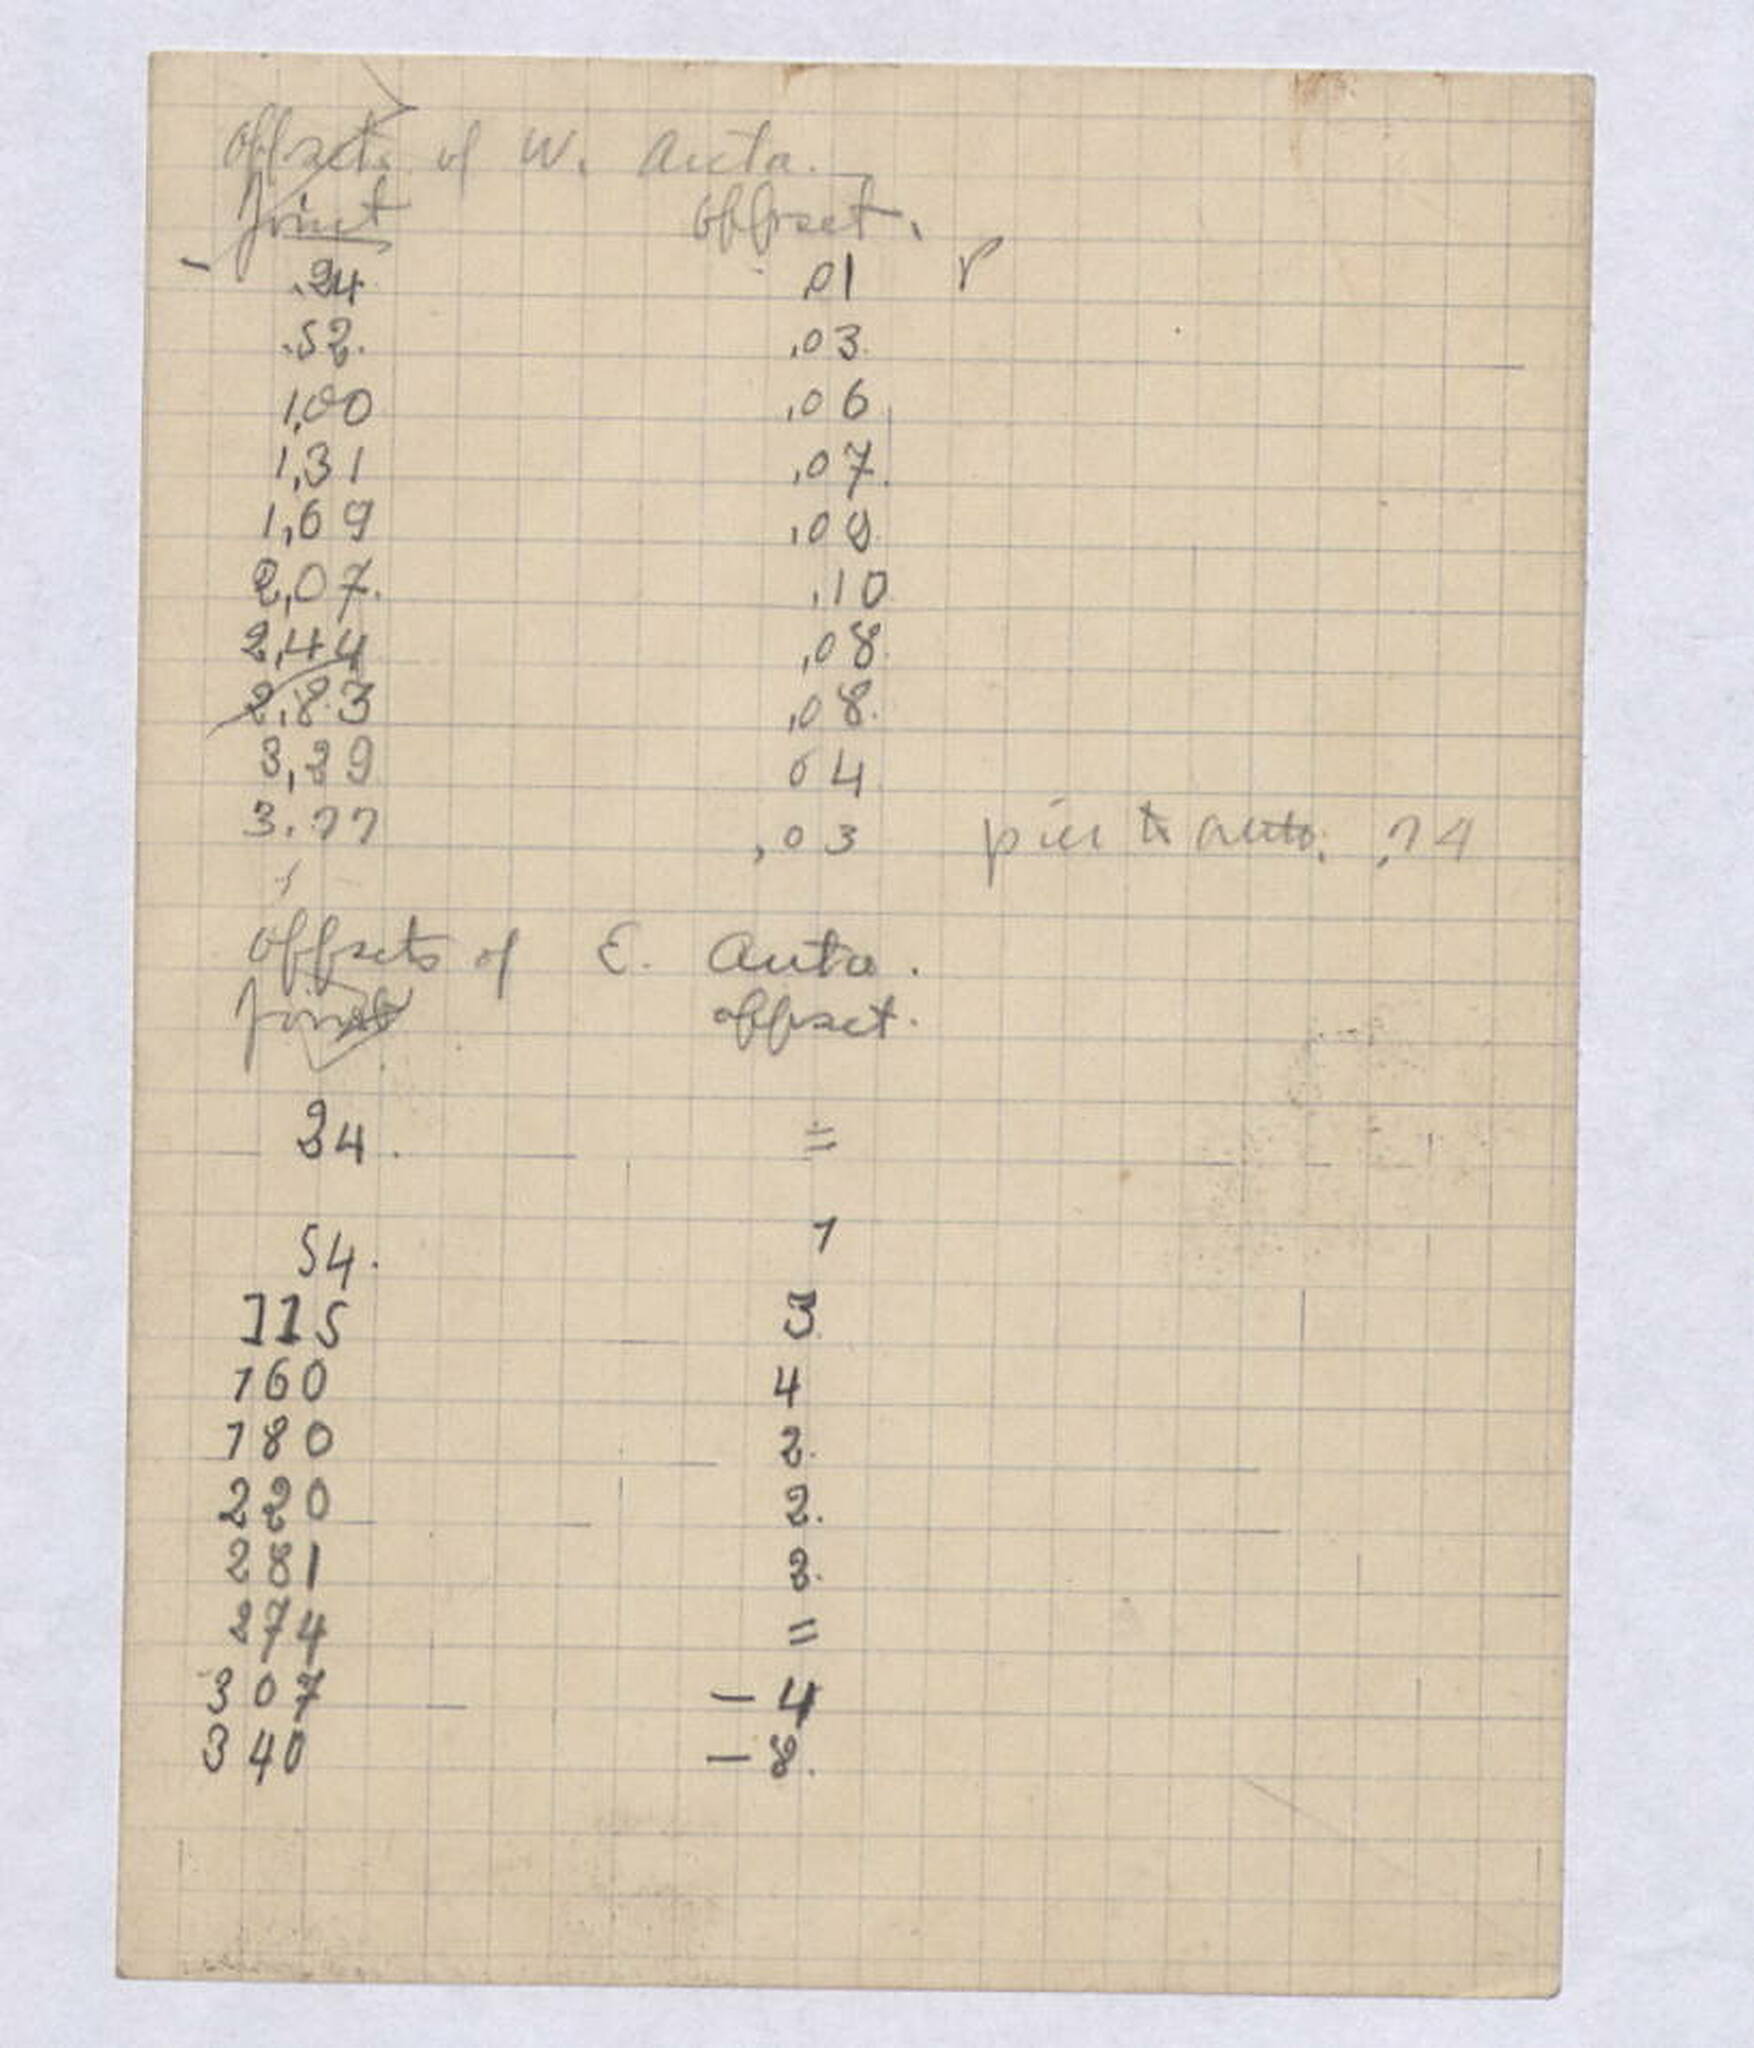 Offsets of W. Anta.
Joint offset.
.24 .01 r
.52. .03.
1,00 ,06
1,31 ,07.
1,69 ,09.
2,07. .10
2,44 ,08.
2.83 ,08.
3,29 04
3.77 ,03 pier to anta. .74
Offsets of E. Anta.
Joint offset.
24. =
54. 1
115 3
160 4
180 2.
220 2.
281 2.
274 =
307 - 4
340 - 8.